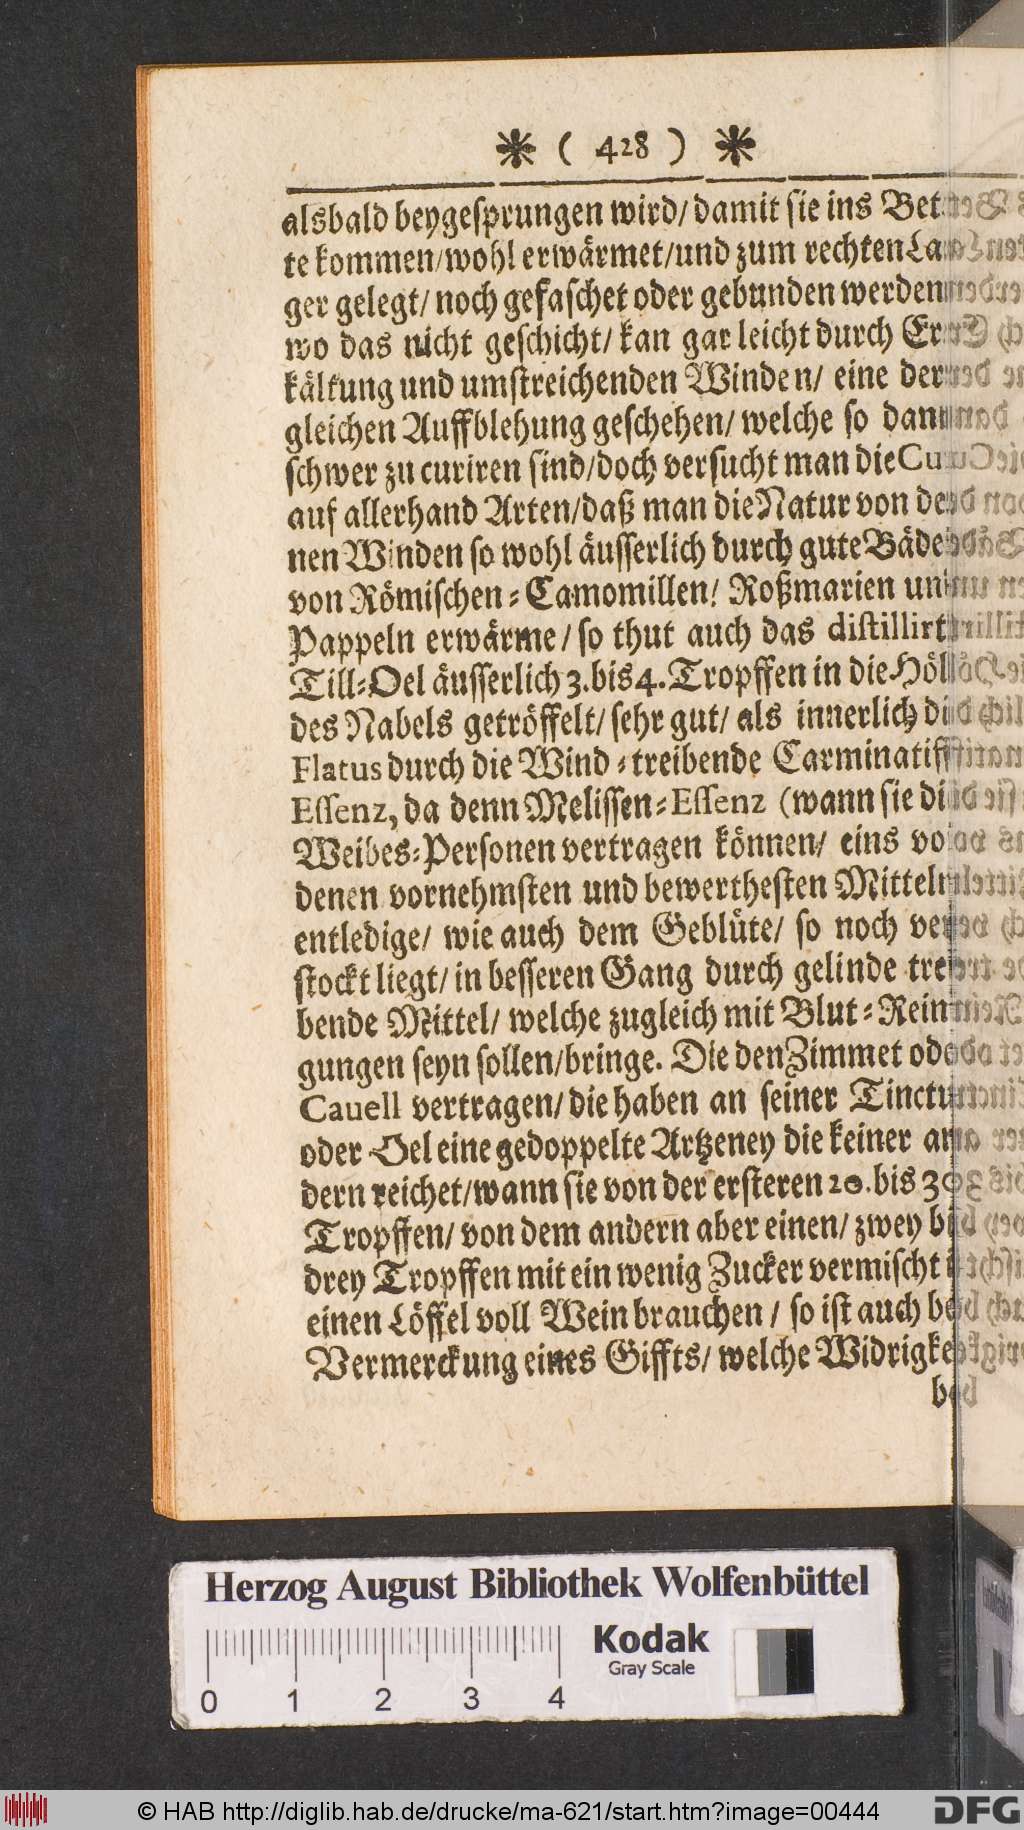 * ( 428 ) *
alsbald beygesprungen wird/ damit sie ins Bet
te kommen/wohl erwärmet/und zum rechten La
ger gelegt/ noch gefaschet oder gebunden werden
wo das nicht geschicht/ kan gar leicht durch Er
kältung und umstreichenden Winden/ eine der
gleichen Auffblehung geschehen/ welche so dann
schwer zu curiren sind/doch versucht man die Cu
auf allerhand Arten/daß man die Natur von de
nen Winden so wohl äusserlich durch gute Bäde
von Römischen-Camomillen/ Roßmarien un
Pappeln erwärme/ so thut auch das distillirt
Till-Oel äusserlich 3. bis 4. Tropffen in die Höl
des Nabels getröffelt/ sehr gut/ als innerlich di
Flatus durch die Wind-treibende Carminatiff
Essenz, da denn Melissen-Essenz (wann sie di
Weibes-Personen vertragen können/ eins vo
denen vornehmsten und bewerthesten Mitteln
entledige/ wie auch dem Geblüte/ so noch ver
stockt liegt/ in besseren Gang durch gelinde trei
bende Mittel/ welche zugleich mit Blut-Reini
gungen seyn sollen/bringe. Die den Zimmet ode
Cavell vertragen/ die haben an seiner Tinctur
oder Oel eine gedoppelte Artzeney die keiner an
dern reichet/wann sie von der ersteren 20. bis 30
Tropffen/ von dem andern aber einen/ zwey bi
drey Tropffen mit ein wenig Zucker vermischt i
einen Löffel voll Wein brauchen / so ist auch be
Vermerckung eines Giffts/ welche Widrigke
be
Herzog August Bibliothek Wolfenbüttel
Kodak
Gray Scale
0 1 2 3 4
© HAB http://diglib.hab.de/drucke/ma-621/start.htm?image=00444
DFG